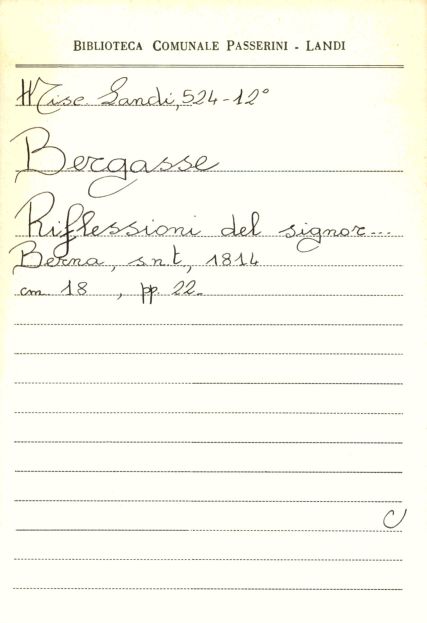 BIBLIOTECA COMUNALE PASSERINI - LANDI
Misc. Landi, 524-12°
Bergasse
Riflessioni del signor...
Berna, s.n.t, 1814
cm 18 , pp. 22.